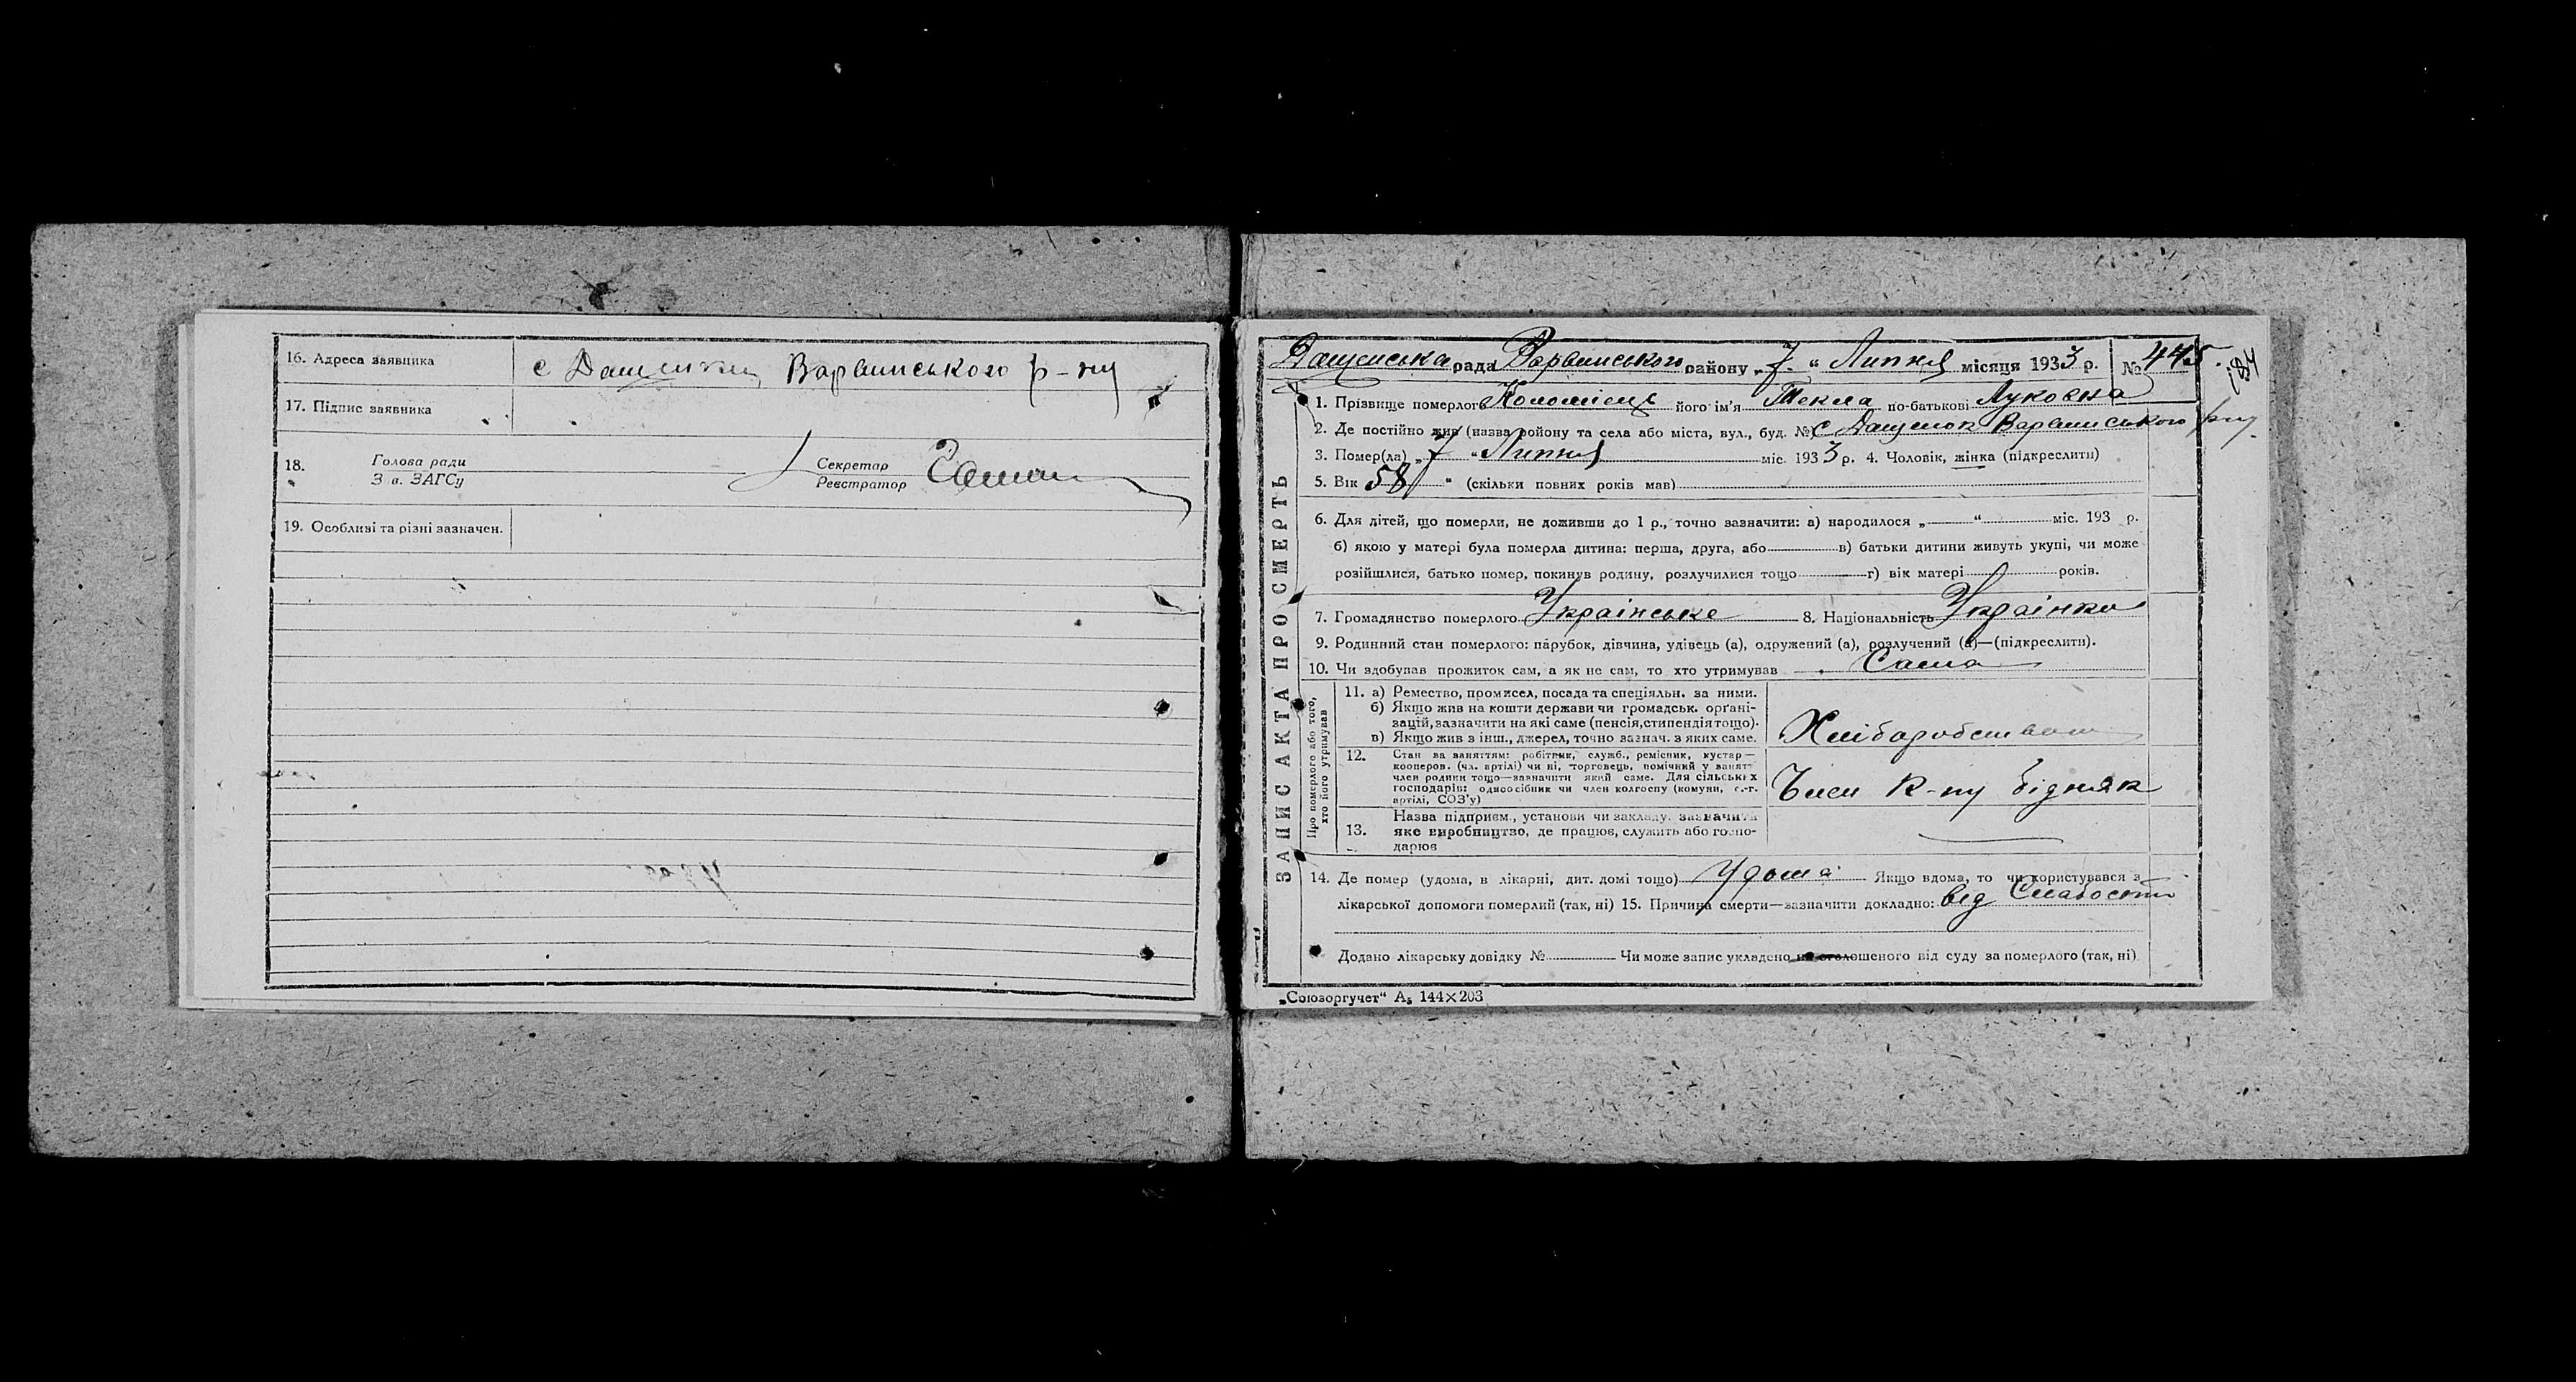 16. Адреса заявника с Дащенки Варвинського р-ну
17. Підпис заявника
18. Голова ради
З в. ЗАГСу
Секретар
Реєстратор
19. Особливі та різні зазначен.
ЗАПИС АКТА ПРО СМЕРТЬ
Дащенська рада Варвинського району „7“ Липня місяця 1933 р. № 445.
184
1. Прізвище померлого Коломієць його ім'я Текла по-батькові Луковна
2. Де постійно жив (назва району та села або міста, вул., буд. № С Дащенок Варвинського рну
3. Помер(ла) „7“ Липня міс. 1933 р. 4. Чоловік, жінка (підкреслити)
5. Вік 58 “ (скільки повних років мав)
6. Для дітей, що померли, не доживши до 1 р., точно зазначити: а) народилося „ “ міс. 193 р.
б) якою у матері була померла дитина: перша, друга, або в) батьки дитини живуть укупі, чи може
розійшлися, батько помер, покинув родину, розлучилися тощо г) вік матері років.
7. Громадянство померлого Українське 8. Національність Українка
9. Родинний стан померлого: парубок, дівчина, удівець (а), одружений (а), розлучений (а)—(підкреслити).
10. Чи здобував прожиток сам, а як не сам, то хто утримував Сама
Про померлого або того,
хто його утримував
11. а) Ремество, промисел, посада та спеціяльн. за ними.
б) Якщо жив на кошти держави чи громадськ. органі-
зацій, зазначити на які саме (пенсія, стипендія тощо).
в) Якщо жив з інш., джерел, точно зазнач. з яких саме.
Хліборобством
12. Стан за заняттям: робітник, служб., ремісник, кустар—
кооперов. (чл. артілі) чи ні, торговець, помічний у занят—
член родини тощо—зазначити який саме. Для сільських
господарів: одноосібник чи член колгоспу (комуни, с.-г.
артілі, СОЗ'у)
Член К-пу бідняк
13. Назва підприєм., установи чи закладу, зазначити
яке виробництво, де працює, служить або госпо-
дарює
14. Де помер (удома, в лікарні, дит. домі тощо) Удома Якщо вдома, то чи користувався з
лікарської допомоги померлий (так, ні) 15. Причина смерти—зазначити докладно: від Слабости
Додано лікарську довідку № Чи може запис укладено на оголошеного від суду за померлого (так, ні)
„Союзоргучет“ А₅ 144×203